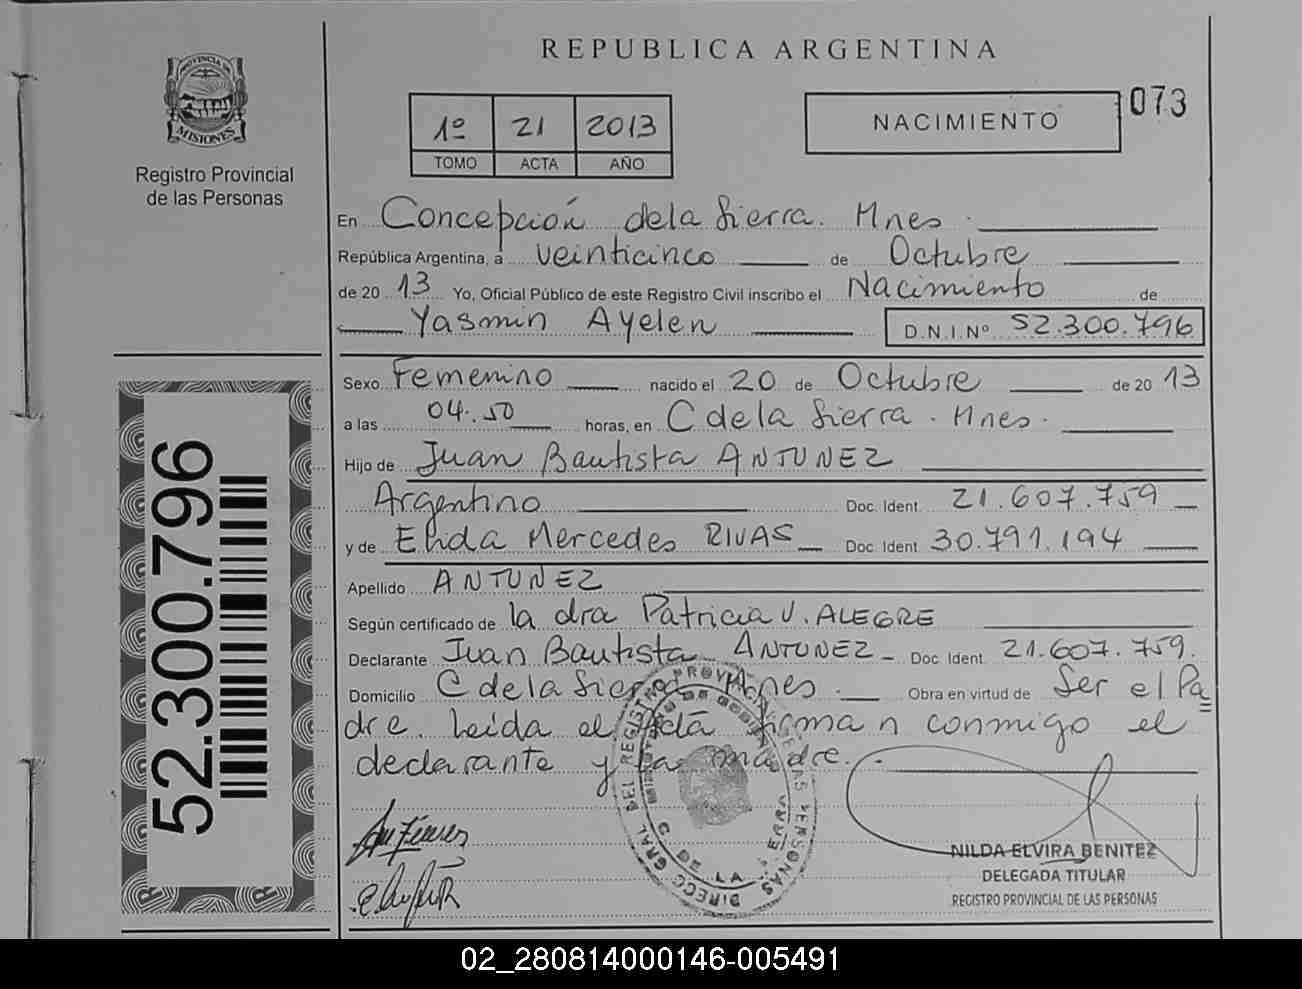 REPUBLICA ARGENTINA
PROVINCIA DE
MISIONES
Registro Provincial
de las Personas
1º 21 2013
TOMO ACTA AÑO
NACIMIENTO
073
En Concepción de la Sierra. Mnes.
República Argentina, a veinticinco de Octubre
de 20 13 Yo, Oficial Público de este Registro Civil inscribo el Nacimiento de
Yasmin Ayelen D.N.I.Nº 52.300.796
Sexo Femenino nacido el 20 de Octubre de 20 13
a las 04.50 horas, en C de la Sierra. Mnes.
Hijo de Juan Bautista ANTUNEZ
Argentino Doc. Ident. 21.607.759
y de Mercedes RIVAS Doc. Ident. 30.791.194
Apellido ANTUNEZ
Según certificado de la dra Patricia V. ALEGRE
Declarante Juan Bautista ANTUNEZ Doc. Ident. 21.607.759.
Domicilio C de la Sierra Mnes. Obra en virtud de Ser el Pa
dre. Leída el Acta firman conmigo el
declarante y la madre.
52.300.796
DIRECC GRAL DEL REGISTRO PROVINCIAL DE LAS PERSONAS
C DE LA SIERRA
NILDA ELVIRA BENITEZ
DELEGADA TITULAR
REGISTRO PROVINCIAL DE LAS PERSONAS
02_280814000146-005491